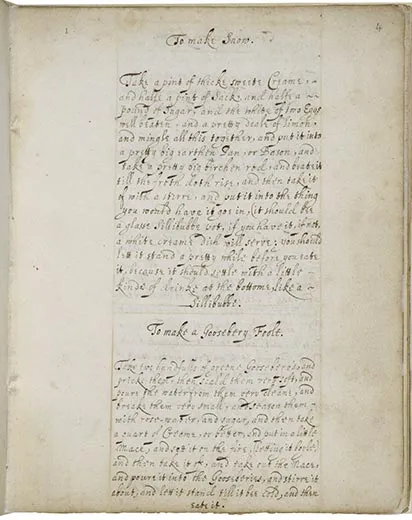 1
4
To make Snow.
Take a pint of thicke sweete Creame,
and halfe a pint of Sack, and halfe a
pound of Sugar, and the white of two Eggs
well beaten, and a pretty deale of limon,
and mingle all this together, and put it into
a pretty big earthen Pan, or Bason, and
take a pretty big birchen rod, and beate it
till the froth doth rise, and then take it
of with a sticke, and put it into the thing
you would have it goe in, (it should bee
a glasse Sillibubbe pot, if you have it, if not,
a white creame Dish will serve: you should
lett it stand a pretty while before you eate
it, because it should settle with a little
kinde of drinke at the bottome, like a
Sillibubbe.
To make a Gooseberry Foole.
Take two handfulls of greene Gooseberryes, and
pricke them, then scald them very soft, and
poure the water from them very cleane, and
breake them very small, and season them
with rose-water, and sugar, and then take
a quart of Creame, or butter, and put in a little
Mace, and sett it on the fire, letting it boyle,
and then take it of, and take out the Mace,
and poure it into the Gooseberries, and stirre it
about, and lett it stand till it bee cold, and then
eate it.